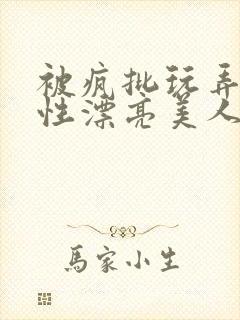 被疯批玩弄
性漂亮美人
馬家小生